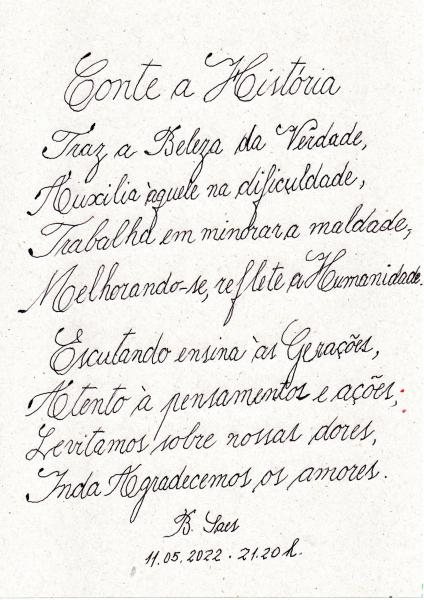 Conte a História
Traz a Beleza da Verdade,
Auxilia àquele na dificuldade,
Trabalha em minorar a maldade,
Melhorando-se, reflete a Humanidade.
Escutando ensina às Gerações,
Atento à pensamentos e ações;
Levitamos sobre nossas dores,
Inda Agradecemos os amores.
B. Saes
11.05.2022 - 21.20 h.